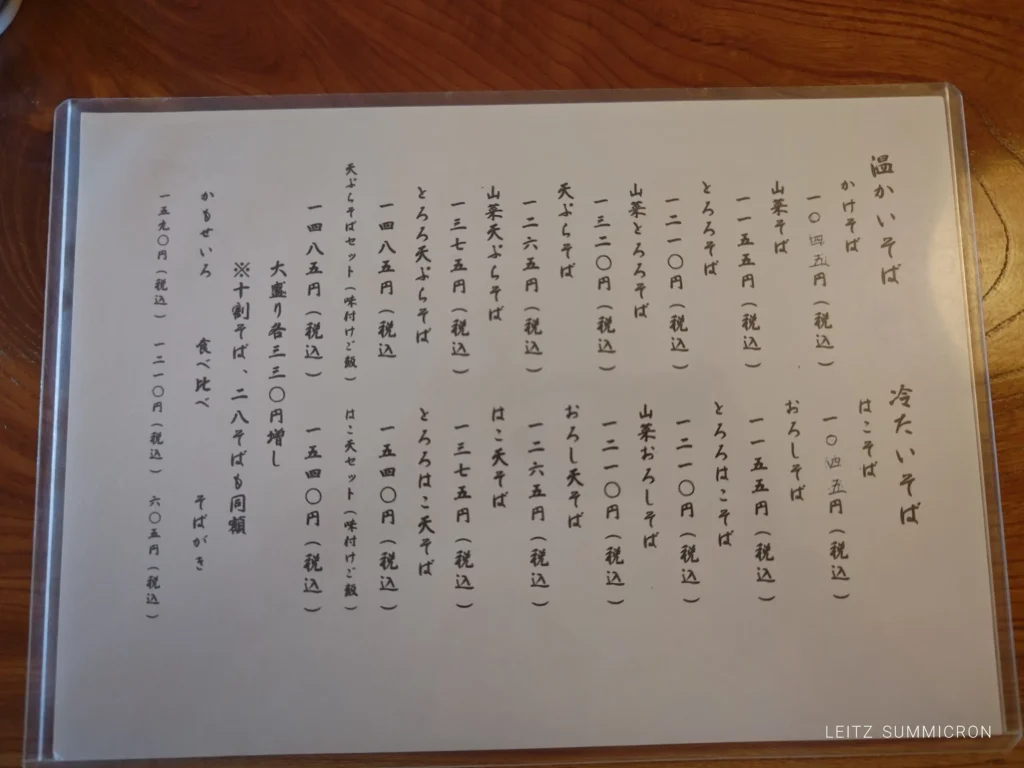 温かいそば
かけそば
一〇四五円(税込)
山菜そば
一一五五円(税込)
とろろそば
一二一〇円(税込)
山菜とろろそば
一三二〇円(税込)
天ぷらそば
一二六五円(税込)
山菜天ぷらそば
一三七五円(税込)
とろろ天ぷらそば
一四八五円(税込
天ぷらそばセット(味付けご飯)
一四八五円(税込)
冷たいそば
はこそば
一〇四五円(税込)
おろしそば
一一五五円(税込)
とろろはこそば
一二一〇円(税込)
山菜おろしそば
一二一〇円(税込)
おろし天そば
一二六五円(税込)
はこ天そば
一三七五円(税込)
とろろはこ天そば
一五四〇円(税込)
はこ天セット(味付けご飯)
一五四〇円(税込)
大盛り各三三〇円増し
※十割そば、二八そばも同額
かもせいろ
一五九〇円(税込)
食べ比べ
一二一〇円(税込)
そばがき
六〇五円(税込)
LEITZ SUMMICRON